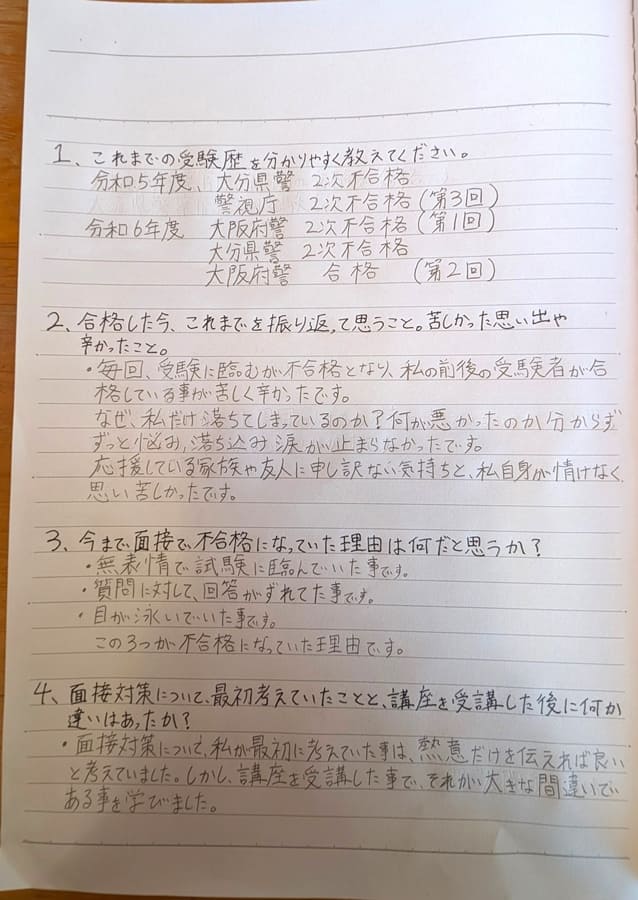 1、これまでの受験歴を分かりやすく教えてください。
令和5年度 大分県警 2次不合格
警視庁 2次不合格(第3回)
令和6年度 大阪府警 2次不合格(第1回)
大分県警 2次不合格
大阪府警 合格 (第2回)
2、合格した今、これまでを振り返って思うこと。苦しかった思い出や
辛かったこと。
・毎回、受験に臨むが不合格となり、私の前後の受験者が合
格している事が苦しく辛かったです。
なぜ、私だけ落ちてしまっているのか?何が悪かったのか分からず
ずっと悩み,落ち込み涙が止まらなかったです。
応援している家族や友人に申し訳ない気持ちと、私自身が情けなく
思い苦しかったです。
3、今まで面接で不合格になっていた理由は何だと思うか?
・無表情で試験に臨んでいた事です。
・質問に対して、回答がずれてた事です。
・目が泳いでいた事です。
この3つが不合格になっていた理由です。
4、面接対策について、最初考えていたことと、講座を受講した後に何か
違いはあったか?
・面接対策について、私が最初に考えていた事は、熱意だけを伝えれば良い
と考えていました。しかし、講座を受講した事で、それが大きな間違いで
ある事を学びました。